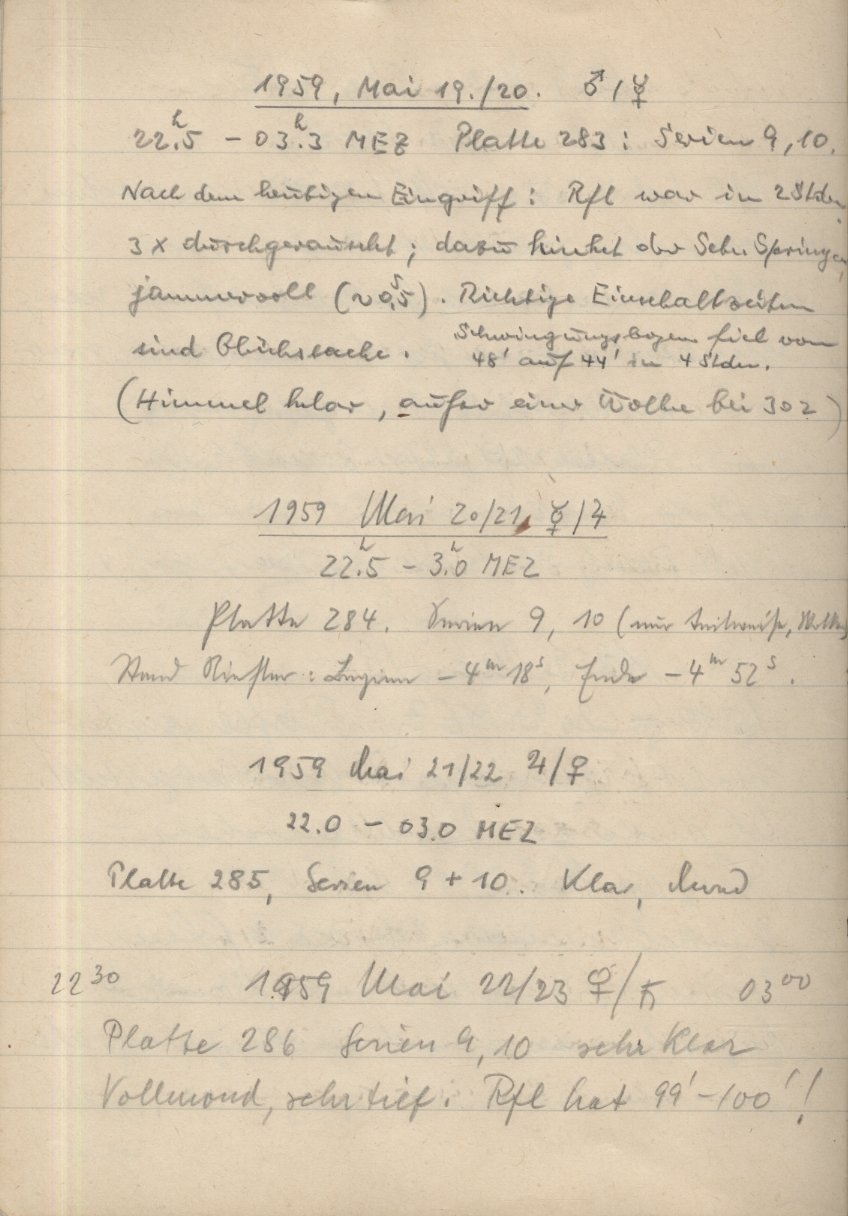 1959, Mai 19./20. ♂/☿
22ʰ.5 – 03ʰ.3 MEZ Platte 283: Serien 9, 10.
Nach dem heutigen Eingriff: Rfl war in 2 Stden
3 x durchgerauscht; dazu hinkt der Seku Springer
jammervoll (~0ˢ.5). Richtige Einschaltzeiten
sind Glückssache. Schwingungsbogen fiel von
48' auf 44' in 4 Stden.
(Himmel klar, außer einer Wolke bei 302)
1959 Mai 20/21, ☿/♃
22ʰ.5 – 3ʰ.0 MEZ
Platte 284. Serien 9, 10 (nur teilweise, Wolken
Stand Riefler: Beginn – 4ᵐ 18ˢ, Ende – 4ᵐ 52ˢ.
1959 Mai 21/22 ♃/♀
22.0 – 03.0 MEZ
Platte 285, Serien 9 + 10. Klar, Mond
22³⁰ 1959 Mai 22/23 ♀/♄ 03⁰⁰
Platte 286 Serien 9, 10 sehr Klar
Vollmond, sehr tief. Rfl hat 99' – 100'!